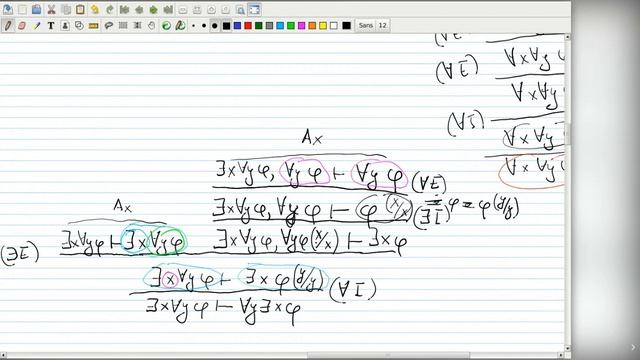 Sans 12
(∀E)
∀x∀y φ
(∀E)
∀x∀y φ
(∀I)
∀x∀y φ
∀x∀y φ
Ax
∃x∀yφ, ∀yφ ⊢ ∀yφ
(∀E)
∃x∀yφ, ∀yφ ⊢ φ (x/x)
(∃I) φ = φ(y/y)
Ax
∃x∀yφ ⊢ ∃x ∀yφ
∃x∀yφ, ∀yφ(x/x) ⊢ ∃xφ
(∃E)
∃x∀yφ ⊢ ∃xφ(y/y)
(∀I)
∃x∀yφ ⊢ ∀y∃xφ